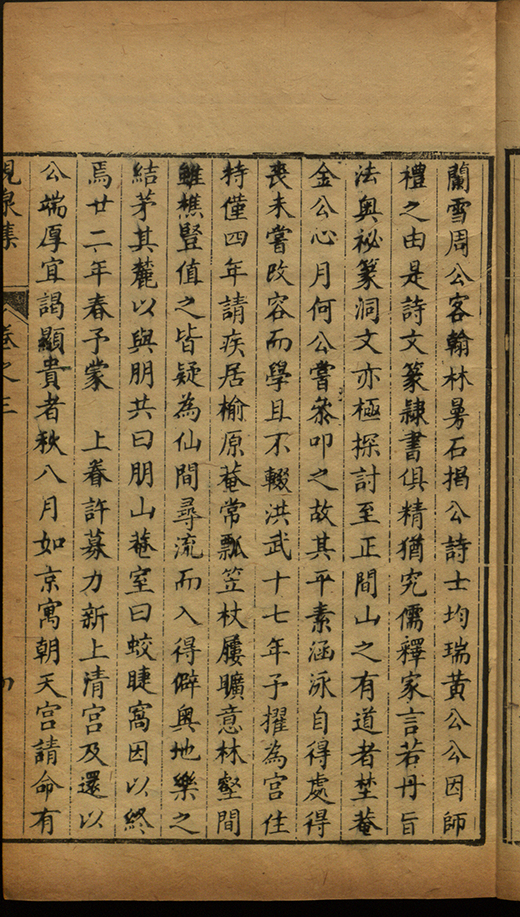 蘭雪周公客翰林㬅石揭公詩士均瑞黃公公因師
禮之由是詩文篆隸書俱精猶究儒釋家言若丹旨
法奧祕篆洞文亦極探討至正間山之有道者埜菴
金公心月何公嘗叅叩之故其平素涵泳自得處得
喪未嘗改容而學且不輟洪武十七年予擢為宮住
持僅四年請疾居榆原菴常瓢笠杖屨曠意林壑間
雖樵豎值之皆疑為仙間尋流而入得僻奧地樂之
結茅其麓以與朋共曰朋山菴室曰蛟睫窩因以終
焉廿二年春予蒙　上眷許募力新上清宮及還以
公端厚宜謁顯貴者秋八月如京寓朝天宮請命有
峴泉集　卷之三